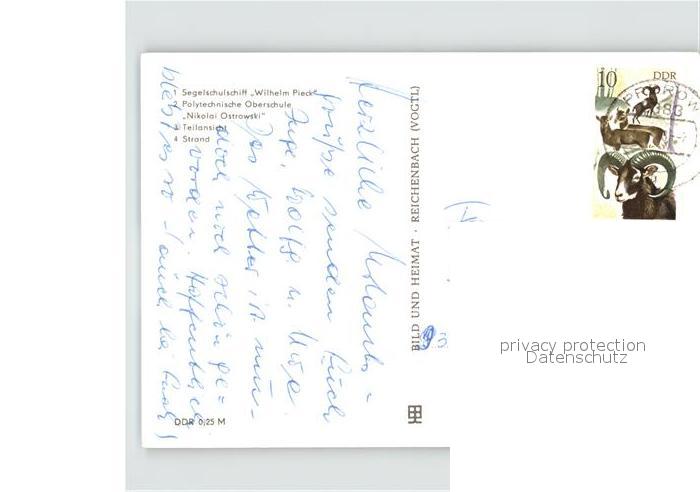 1 Segelschulschiff „Wilhelm Pieck"
2 Polytechnische Oberschule
„Nikolai Ostrowski"
3 Teilansicht
4 Strand
Herzliche Urlaubs=
grüße senden Euch
Inge, Wolfg. u. Uwe.
Das Wetter ist nun
doch noch schön ge=
worden. Hoffentlich
bleibt es so
auch bei Euch!
DDR 0,25 M
BILD UND HEIMAT · REICHENBACH (VOGTL)
10 DDR
PREROW
privacy protection
Datenschutz